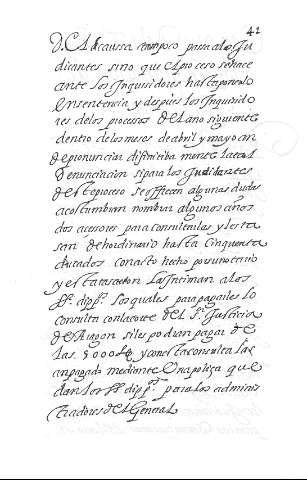 42
D. La causa tampoco pasa a los Ju
dicantes sino que el proceso se hace
ante los Inquisidores hasta ponerlo
en sentencia y despues los Inquisido
res de los procesos del año siguiente
dentro de los meses de abril y mayo an
de pronunciar difinitiva mente la tal
Denunciacion si para los Judicantes
deste proceso se offrecen algunas dudas
acostumbran nombrar algunos años
dos acesores para consultarlas y les ta
san de hordinario hasta cinquenta
ducados con acto hecho por un notario
y esta tasacion la intiman a los
ss. dipp.s los quales para pagarles lo
consulta con la corte del S.r Justicia
de Aragon si les podran pagar de
las 5000 L y con esta consulta las
an pagado mediante una poliza que
dan los ss. dipp.s para los adminis
tradores del General